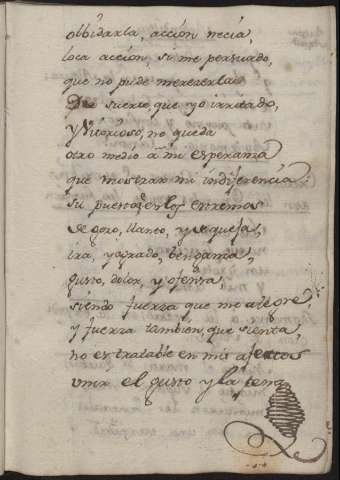 olbidarla, acción necia,
loca acción, si me persuado,
que no pude merecerla
De suerte, que yo irritado,
y Victorioso, no queda
otro medio a mi esperanza
que mostrar mi indiferencia:
su puesto q̃ en los extremos
de gozo, llanto, y de quejas,
ira, y agrado, benganza,
gusto, dolor, y ofensa
siendo fuerza que me alegre,
y fuerza tambien, que sienta,
no es tratable en mis afectos
unir el gusto y la pena